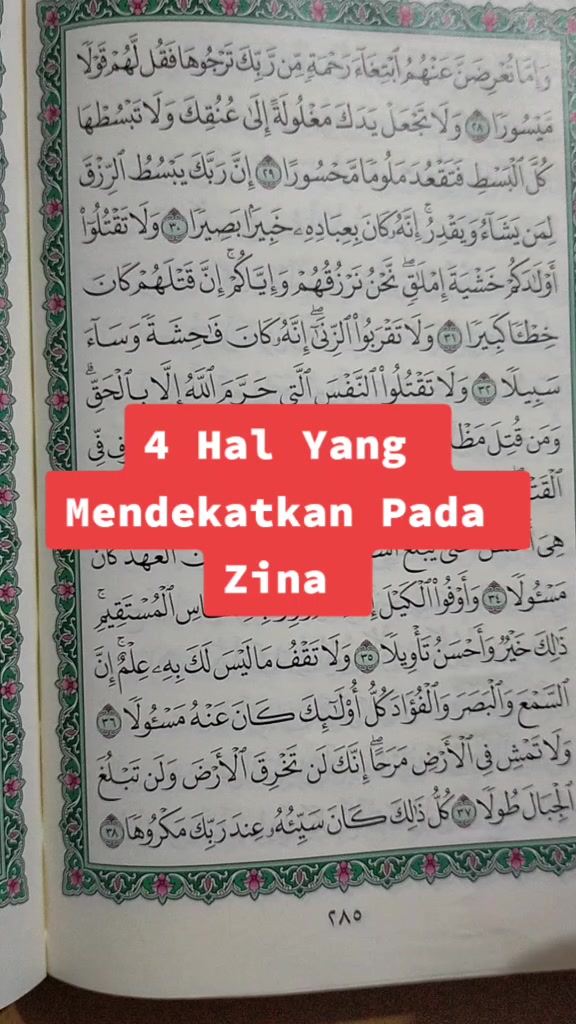 وَإِمَّا تُعْرِضَنَّ عَنْهُمُ ٱبْتِغَآءَ رَحْمَةٍ مِّن رَّبِّكَ تَرْجُوهَا فَقُل لَّهُمْ قَوْلًا
مَّيْسُورًا ٢٨ وَلَا تَجْعَلْ يَدَكَ مَغْلُولَةً إِلَىٰ عُنُقِكَ وَلَا تَبْسُطْهَا
كُلَّ ٱلْبَسْطِ فَتَقْعُدَ مَلُومًا مَّحْسُورًا ٢٩ إِنَّ رَبَّكَ يَبْسُطُ ٱلرِّزْقَ
لِمَن يَشَآءُ وَيَقْدِرُ ۚ إِنَّهُۥ كَانَ بِعِبَادِهِۦ خَبِيرًۢا بَصِيرًا ٣٠ وَلَا تَقْتُلُوٓا۟
أَوْلَـٰدَكُمْ خَشْيَةَ إِمْلَـٰقٍ ۖ نَّحْنُ نَرْزُقُهُمْ وَإِيَّاكُمْ ۚ إِنَّ قَتْلَهُمْ كَانَ
خِطْـًٔا كَبِيرًا ٣١ وَلَا تَقْرَبُوا۟ ٱلزِّنَىٰٓ ۖ إِنَّهُۥ كَانَ فَـٰحِشَةً وَسَآءَ
سَبِيلًا ٣٢ وَلَا تَقْتُلُوا۟ ٱلنَّفْسَ ٱلَّتِى حَرَّمَ ٱللَّهُ إِلَّا بِٱلْحَقِّ ۗ
وَمَن قُتِلَ
4 Hal Yang
Mendekatkan Pada
Zina
ٱلْعَهْدَ كَانَ
مَسْـُٔولًا ٣٤ وَأَوْفُوا۟ ٱلْكَيْلَ ٱلْمُسْتَقِيمِ ۚ
ذَٰلِكَ خَيْرٌ وَأَحْسَنُ تَأْوِيلًا ٣٥ وَلَا تَقْفُ مَا لَيْسَ لَكَ بِهِۦ عِلْمٌ ۚ إِنَّ
ٱلسَّمْعَ وَٱلْبَصَرَ وَٱلْفُؤَادَ كُلُّ أُو۟لَـٰٓئِكَ كَانَ عَنْهُ مَسْـُٔولًا ٣٦
وَلَا تَمْشِ فِى ٱلْأَرْضِ مَرَحًا ۖ إِنَّكَ لَن تَخْرِقَ ٱلْأَرْضَ وَلَن تَبْلُغَ
ٱلْجِبَالَ طُولًا ٣٧ كُلُّ ذَٰلِكَ كَانَ سَيِّئُهُۥ عِندَ رَبِّكَ مَكْرُوهًا ٣٨
٢٨٥